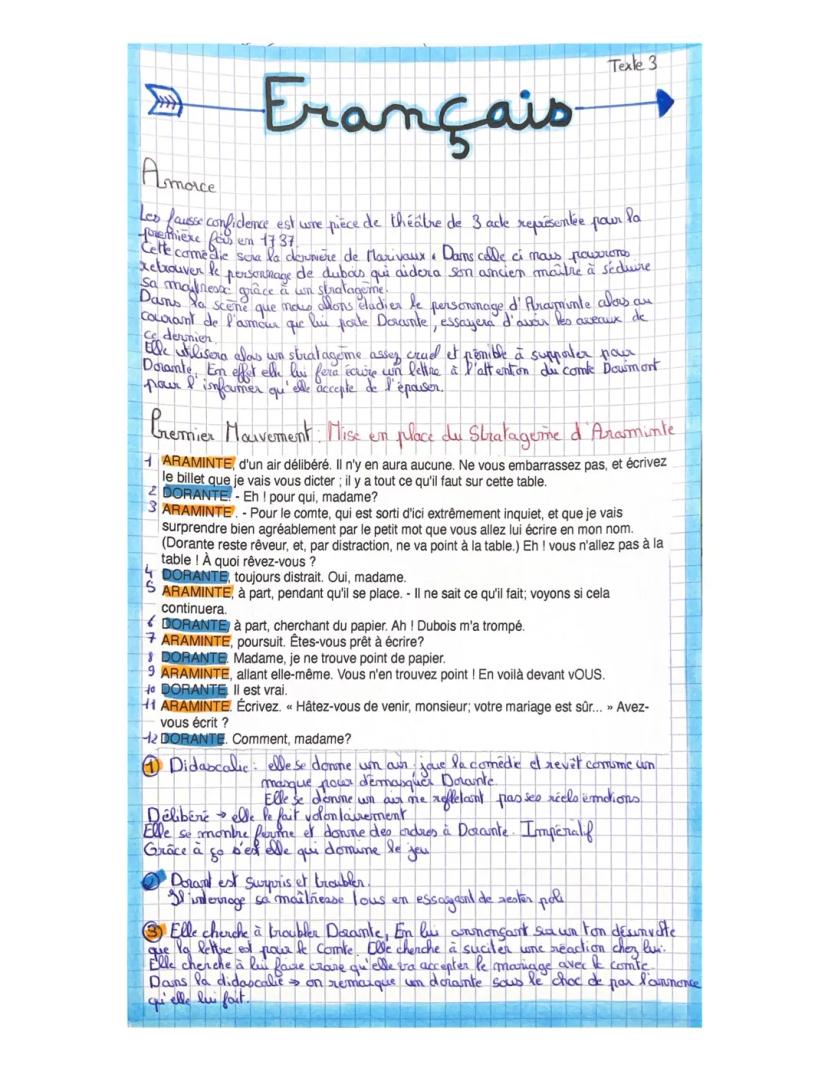 Texte 3
Français
Amorce
Les fausse confidence est une pièce de théâtre de 3 acte représentée pour la
première fois en 1737.
Cette comédie sera la dernière de Marivaux. Dans celle ci nous pourrons
retrouver le personnage de dubois qui aidera son ancien maître à séduire
sa maîtresse grâce à un stratagème.
Dans la scène que nous allons étudier le personnage d'Araminte alors au
courant de l'amour que lui porte Dorante, essayera d'avoir les aveaux de
ce dernier.
Elle utilisera alors un stratagème assez cruel et pénible à supporter pour
Dorante. En effet elle lui fera écrire un lettre à l'attention du comte Dorimont
pour l'informer qu'elle accepte de l'épouser.
Premier Mouvement : Mise en place du Stratagème d'Araminte
1 ARAMINTE, d'un air délibéré. Il n'y en aura aucune. Ne vous embarrassez pas, et écrivez
le billet que je vais vous dicter ; il y a tout ce qu'il faut sur cette table.
2 DORANTE. - Eh ! pour qui, madame?
3 ARAMINTE . - Pour le comte, qui est sorti d'ici extrêmement inquiet, et que je vais
surprendre bien agréablement par le petit mot que vous allez lui écrire en mon nom.
(Dorante reste rêveur, et, par distraction, ne va point à la table.) Eh ! vous n'allez pas à la
table ! À quoi rêvez-vous ?
4 DORANTE, toujours distrait. Oui, madame.
5 ARAMINTE, à part, pendant qu'il se place. - Il ne sait ce qu'il fait; voyons si cela
continuera.
6 DORANTE, à part, cherchant du papier. Ah ! Dubois m'a trompé.
7 ARAMINTE, poursuit. Êtes-vous prêt à écrire?
8 DORANTE. Madame, je ne trouve point de papier.
9 ARAMINTE, allant elle-même. Vous n'en trouvez point ! En voilà devant vOUS.
10 DORANTE. Il est vrai.
11 ARAMINTE. Écrivez. « Hâtez-vous de venir, monsieur; votre mariage est sûr... » Avez-
vous écrit ?
12 DORANTE. Comment, madame?
1 Didascalie : elle se donne un air : joue la comédie et revêt comme un
masque pour démasquer Dorante.
Elle se donne un air ne reflétant pas ses réels émotions.
Délibéré → elle le fait volontairement
Elle se montre ferme et donne des ordres à Dorante. Impératif
Grâce à ça c'est elle qui domine le jeu
2 Dorant est surpris et troubler.
Il interroge sa maîtresse tous en essayant de rester poli
3 Elle cherche à troubler Dorante, En lui annonçant sur un ton désinvolte
que la lettre est pour le Comte. Elle cherche à suciter une réaction chez lui.
Elle cherche à lui faire croire qu'elle va accepter le mariage avec le comte.
Dans la didascalie → on remarque un dorante sous le choc de par l'annonce
qu'elle lui fait.